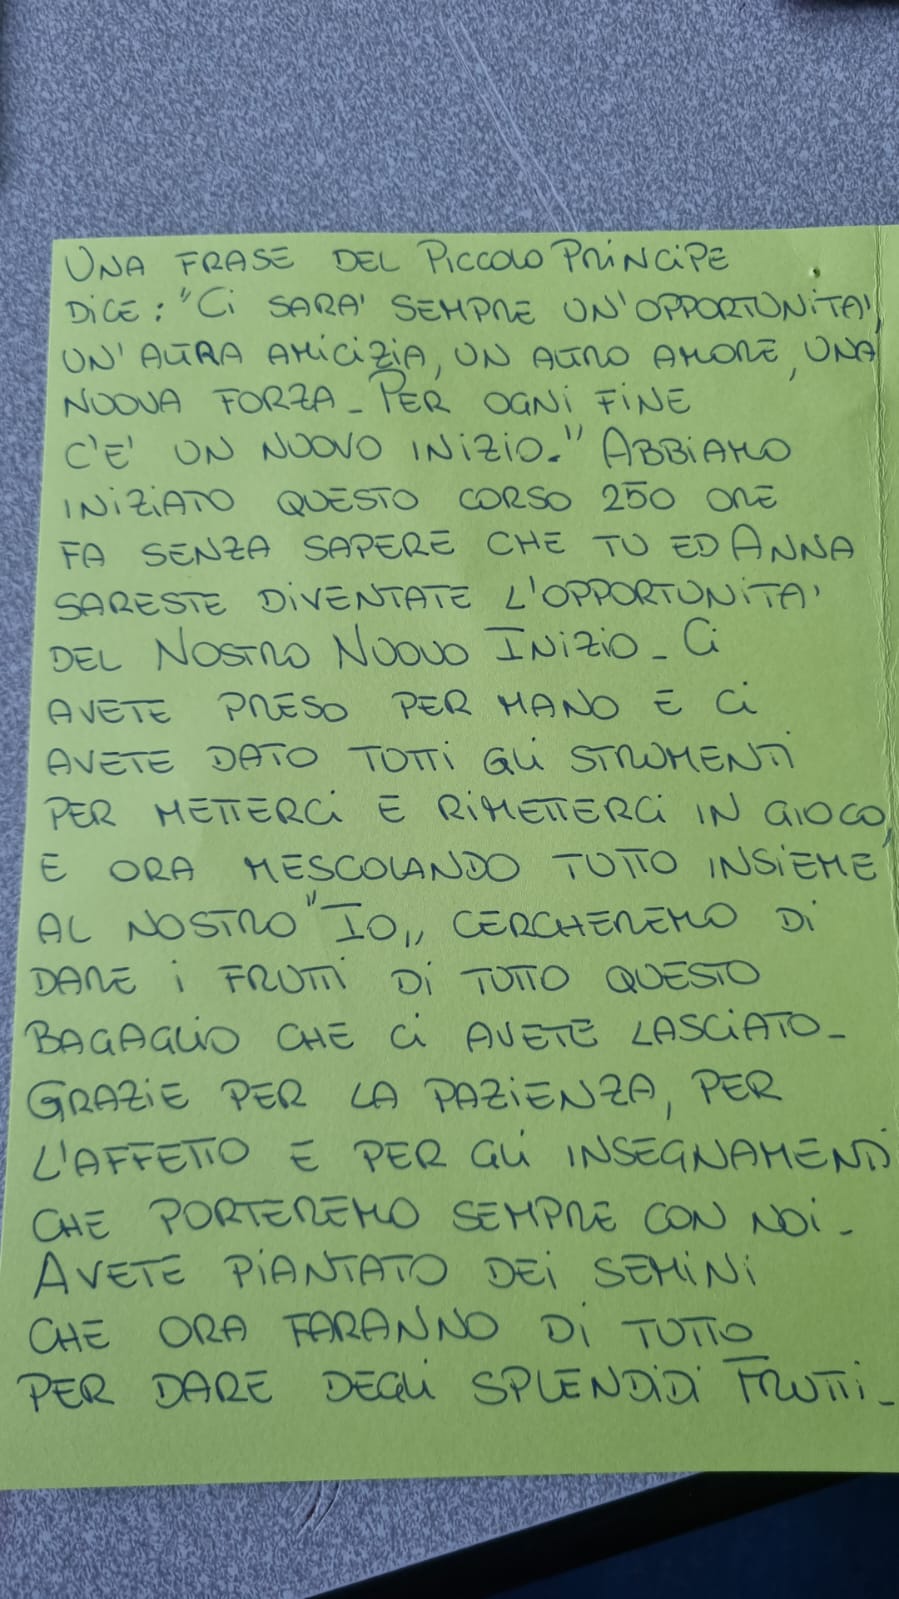 UNA FRASE DEL PICCOLO PRINCIPE
DICE: "CI SARA' SEMPRE UN'OPPORTUNITA',
UN'ALTRA AMICIZIA, UN ALTRO AMORE, UNA
NUOVA FORZA_ PER OGNI FINE
C'E' UN NUOVO INIZIO." ABBIAMO
INIZIATO QUESTO CORSO 250 ORE
FA SENZA SAPERE CHE TU ED ANNA
SARESTE DIVENTATE L'OPPORTUNITA'
DEL NOSTRO NUOVO INIZIO_ CI
AVETE PRESO PER MANO E CI
AVETE DATO TUTTI GLI STRUMENTI
PER METTERCI E RIMETTERCI IN GIOCO,
E ORA MESCOLANDO TUTTO INSIEME
AL NOSTRO "IO,, CERCHEREMO DI
DARE I FRUTTI DI TUTTO QUESTO
BAGAGLIO CHE CI AVETE LASCIATO_
GRAZIE PER LA PAZIENZA, PER
L'AFFETTO E PER GLI INSEGNAMENTI
CHE PORTEREMO SEMPRE CON NOI_
AVETE PIANTATO DEI SEMINI
CHE ORA FARANNO DI TUTTO
PER DARE DEGLI SPLENDIDI FRUTTI_